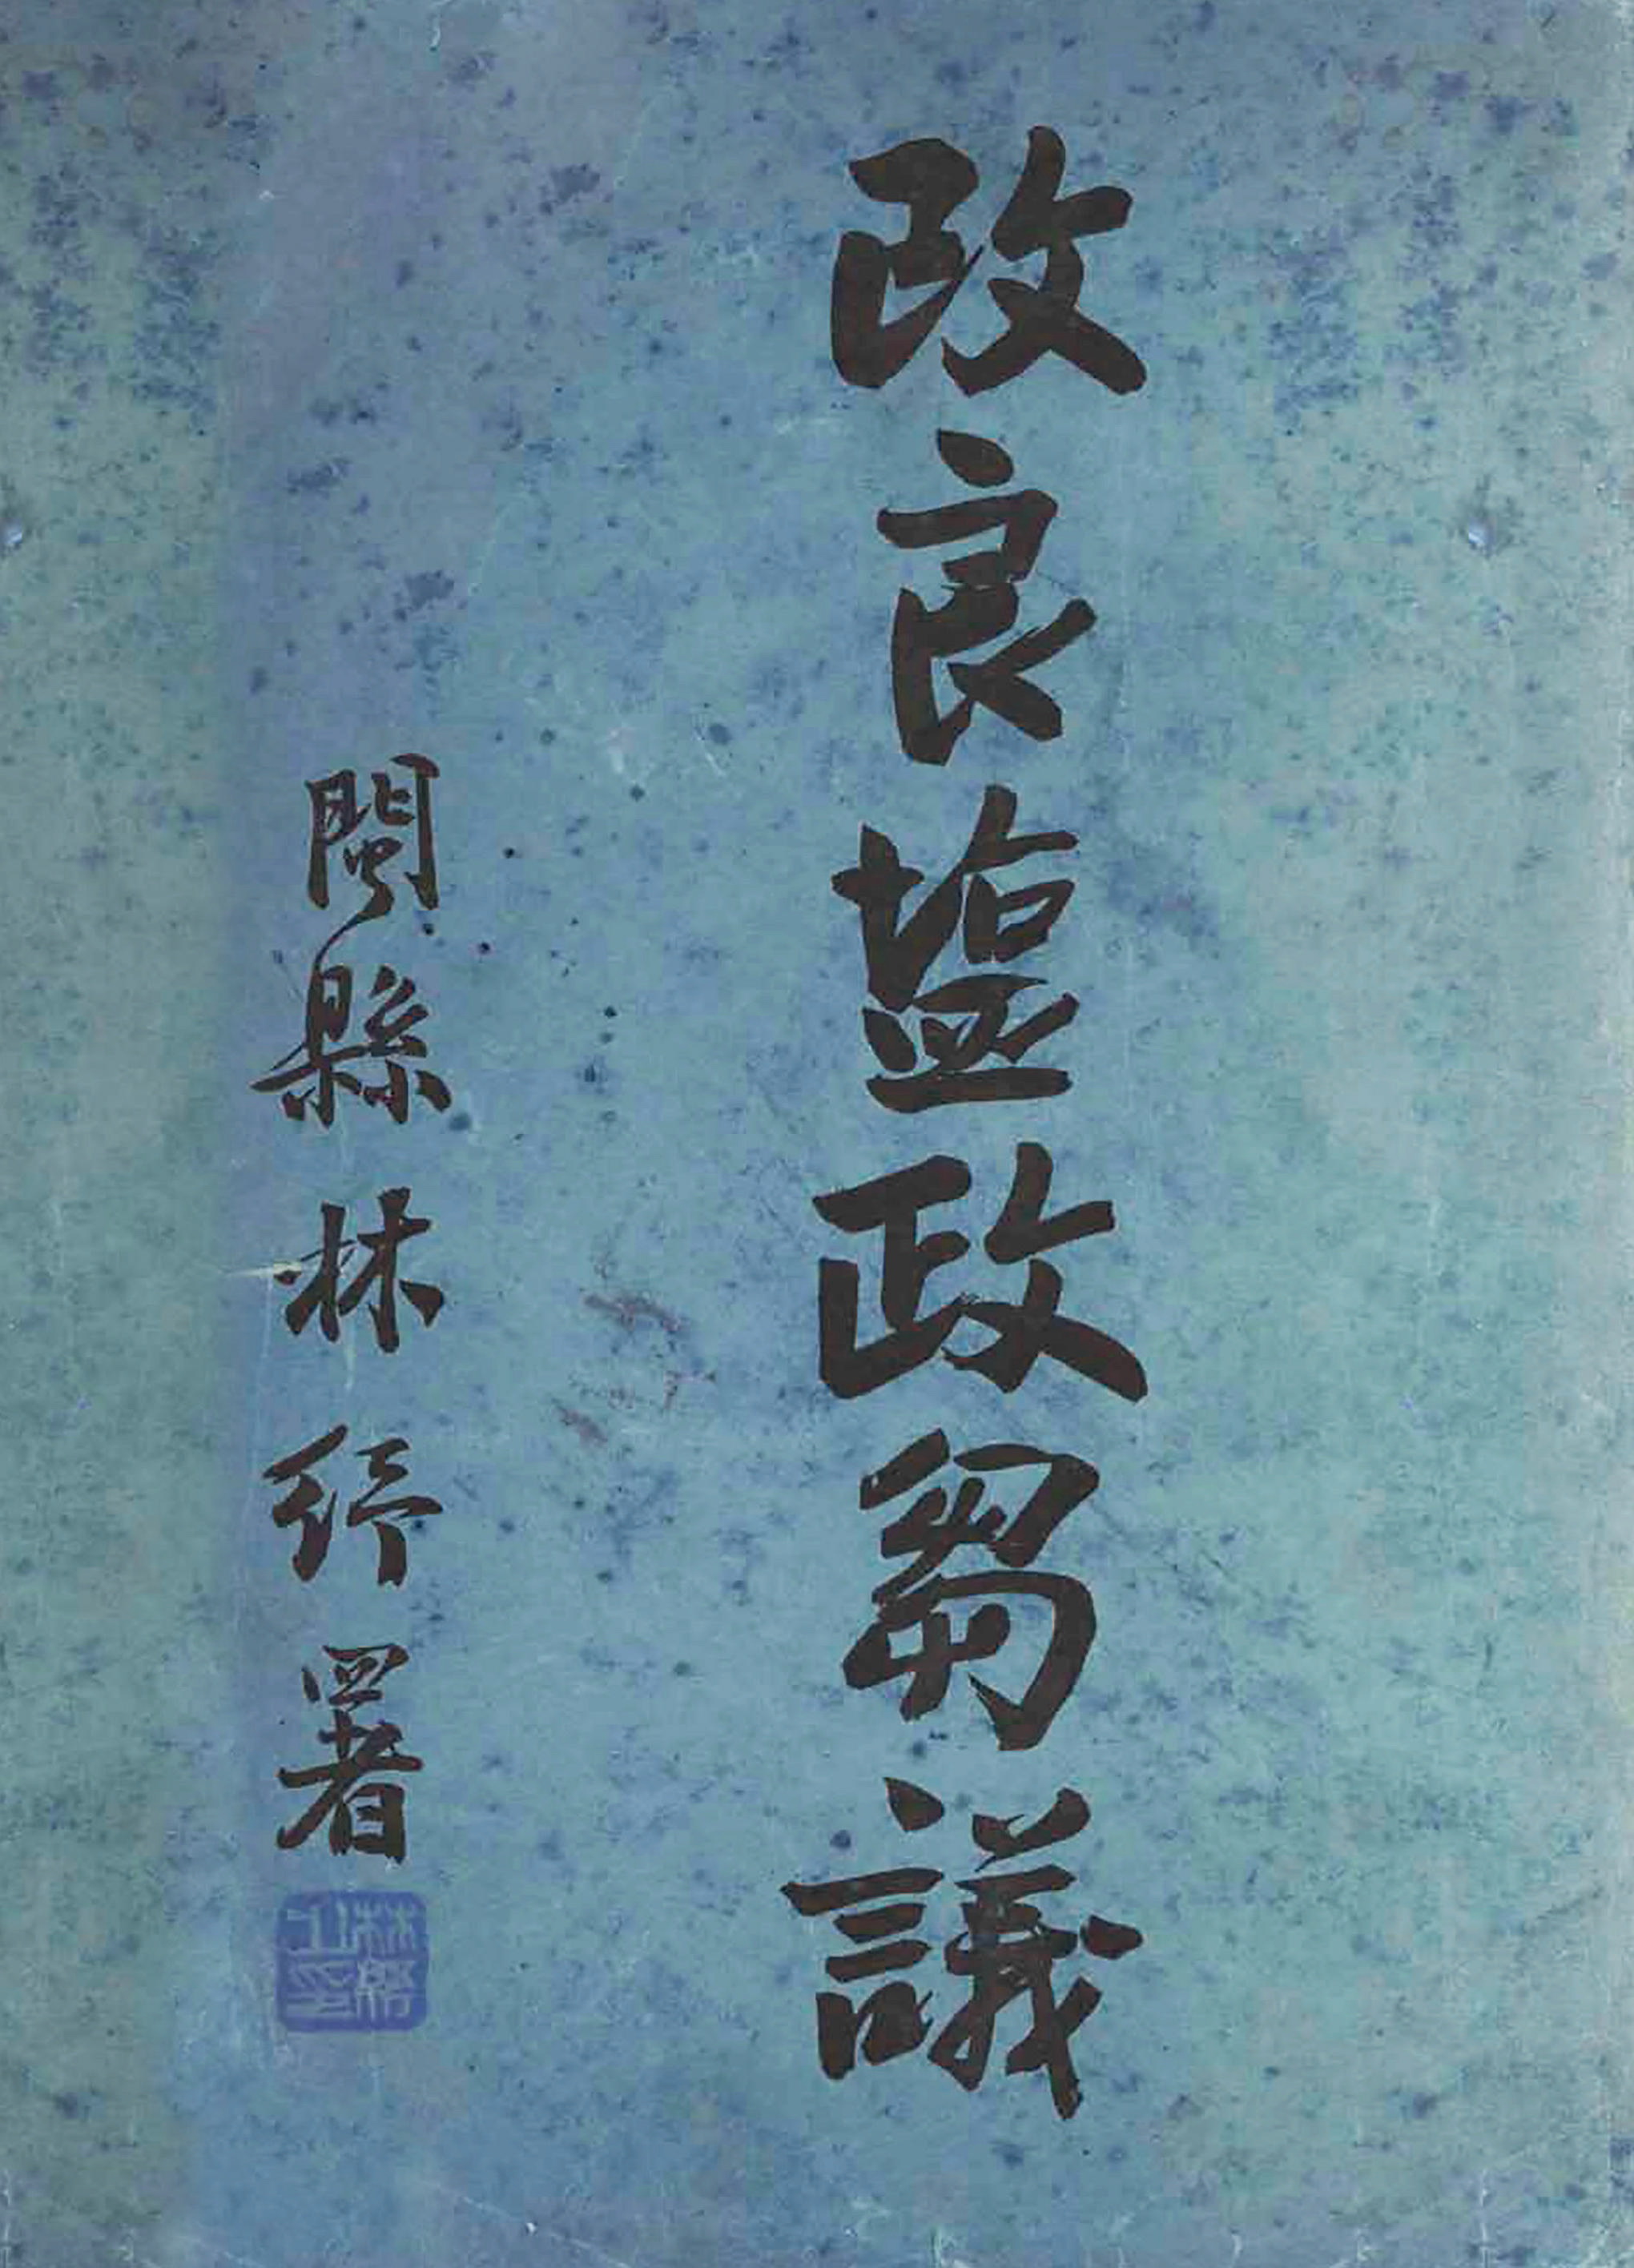 改良塩政芻議
閩縣林紓署